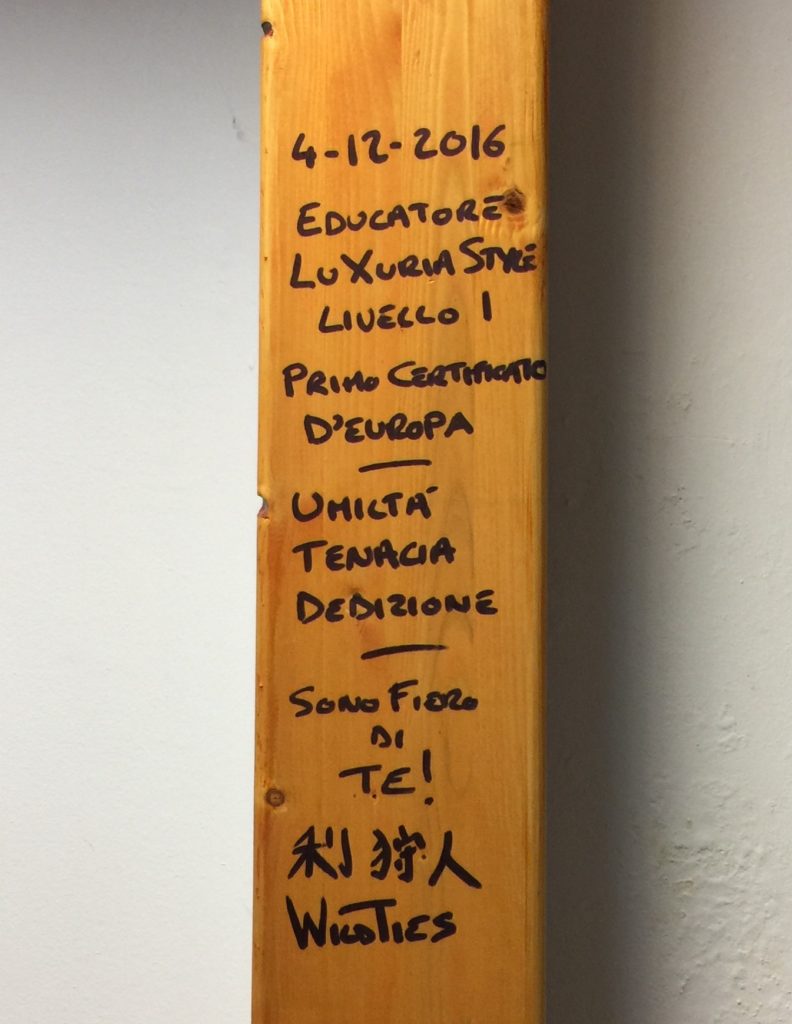 4-12-2016
EDUCATORE
LUXURIA STYLE
LIVELLO 1
PRIMO CERTIFICATO
D'EUROPA
UMILTÀ
TENACIA
DEDIZIONE
SONO FIERO
DI
TE!
利狩人
WILDTIES